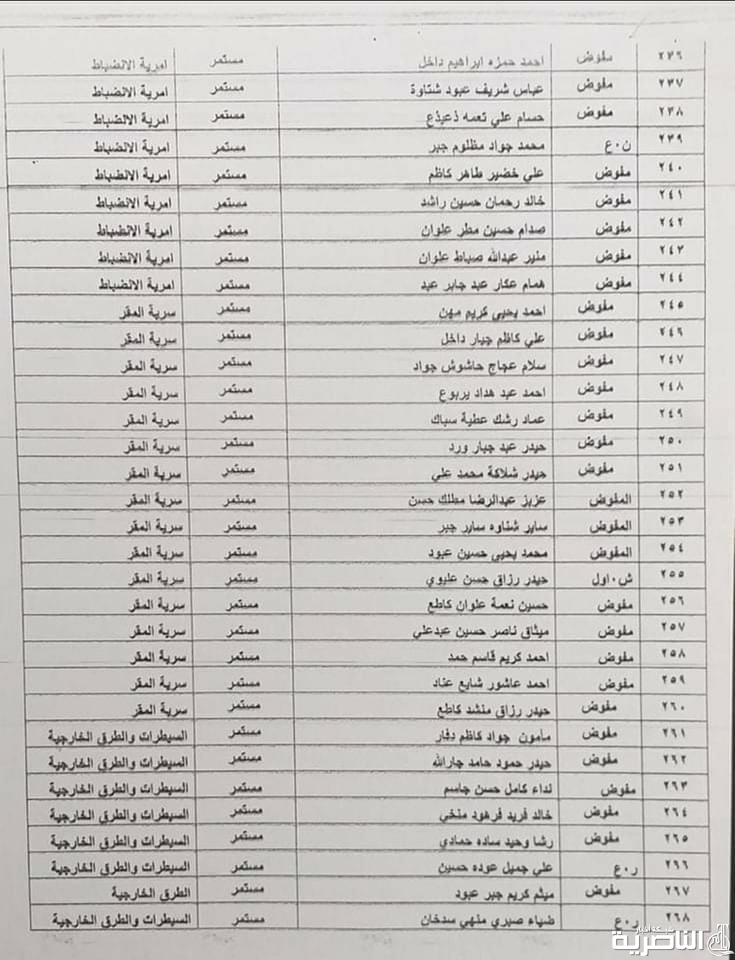 ٢٣٦ مفوض احمد حمزه ابراهيم داخل مستمر امرية الانضباط
٢٣٧ مفوض عباس شريف عبود شتاوة مستمر امرية الانضباط
٢٣٨ مفوض حسام علي نعمه ذعيذع مستمر امرية الانضباط
٢٣٩ ن٠ع محمد جواد مظلوم جبر مستمر امرية الانضباط
٢٤٠ مفوض علي خضير طاهر كاظم مستمر امرية الانضباط
٢٤١ مفوض خالد رحمان حسين راشد مستمر امرية الانضباط
٢٤٢ مفوض صدام حسين مطر علوان مستمر امرية الانضباط
٢٤٣ مفوض منير عبدالله صباط علوان مستمر امرية الانضباط
٢٤٤ مفوض همام عكار عبد جابر عبد مستمر امرية الانضباط
٢٤٥ مفوض احمد يحيى كريم مهن مستمر سرية المقر
٢٤٦ مفوض علي كاظم جبار داخل مستمر سرية المقر
٢٤٧ مفوض سلام عجاج حاشوش جواد مستمر سرية المقر
٢٤٨ مفوض احمد عبد هداد يربوع مستمر سرية المقر
٢٤٩ مفوض عماد رشك عطية سباك مستمر سرية المقر
٢٥٠ مفوض حيدر عبد جبار ورد مستمر سرية المقر
٢٥١ مفوض حيدر شلاكة محمد علي مستمر سرية المقر
٢٥٢ المفوض عزيز عبدالرضا مطلك حسن مستمر سرية المقر
٢٥٣ المفوض ساير شناوه ساير جبر مستمر سرية المقر
٢٥٤ المفوض محمد يحيى حسين عبود مستمر سرية المقر
٢٥٥ ش٠اول حيدر رزاق حسن عليوي مستمر سرية المقر
٢٥٦ مفوض حسين نعمة علوان كاطع مستمر سرية المقر
٢٥٧ مفوض ميثاق ناصر حسين عبدعلي مستمر سرية المقر
٢٥٨ مفوض احمد كريم قاسم حمد مستمر سرية المقر
٢٥٩ مفوض احمد عاشور شايع عناد مستمر سرية المقر
٢٦٠ مفوض حيدر رزاق منشد كاطع مستمر سرية المقر
٢٦١ مفوض مأمون جواد كاظم دفار مستمر السيطرات والطرق الخارجية
٢٦٢ مفوض حيدر حمود حامد جارالله مستمر السيطرات والطرق الخارجية
٢٦٣ مفوض نداء كامل حسن جاسم مستمر السيطرات والطرق الخارجية
٢٦٤ مفوض خالد فريد فرهود منخي مستمر السيطرات والطرق الخارجية
٢٦٥ مفوض رشا وحيد ساده حمادي مستمر السيطرات والطرق الخارجية
٢٦٦ ر٠ع علي جميل عوده حسين مستمر السيطرات والطرق الخارجية
٢٦٧ مفوض ميثم كريم جبر عبود مستمر الطرق الخارجية
٢٦٨ ر٠ع ضياء صبري منهي سدخان مستمر السيطرات والطرق الخارجية
الناصرية